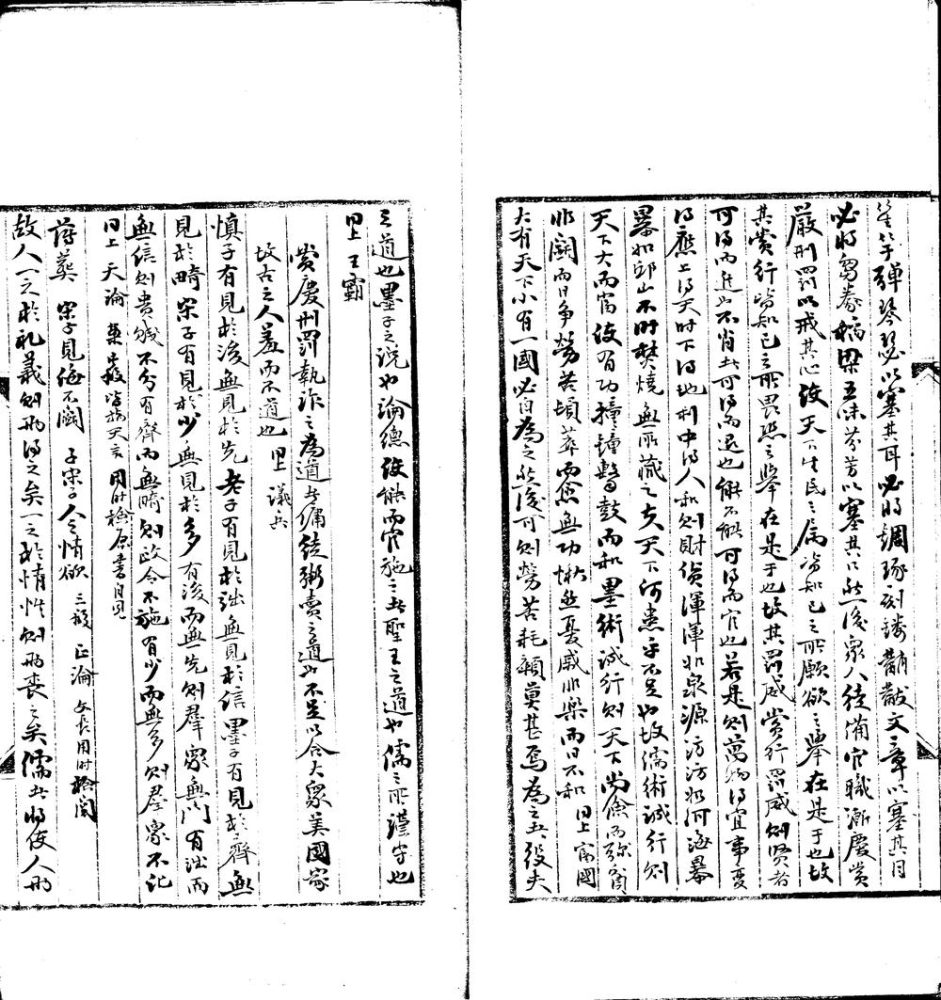 笙竽彈琴瑟以塞其耳必將錭琢刻鏤黼黻文章以塞其目
必將芻豢稻梁五味芬芳以塞其口然後衆人徒備官職漸慶賞
嚴刑罰以戒其心使天下生民之屬皆知己之所願欲之舉在是于也故
其賞行皆知己之所畏恐之舉在是于也故其罰威賞行罰威則賢者
可得而進也不肖者可得而退也能不能可得而官也若是則萬物得宜事變
得應上得天時下得地利中得人和則財貨渾渾如泉源汸汸如河海暴
暴如邱山不時焚燒無所藏之夫天下何患乎不足也故儒術誠行則
天下大而富使有功撞鐘擊鼓而和墨術誠行則天下尚儉而彌貧
非鬬而日爭勞苦頓萃而愈無功愀然憂戚非樂而日不和 同上富國
大有天下小有一國必自為之然後可則勞苦耗顇莫甚焉為之者役夫
之道也墨子之說也論德使能而官施之者聖王之道也儒之所謹守也
同上王霸
賞慶刑罰執詐之為道者傭徒粥賣之道也不足以合大衆美國家
故古之人羞而不道也 同上議兵
慎子有見於後無見於先老子有見於詘無見於信墨子有見於齊無
見於畸宋子有見於少無見於多有後而無先則羣衆無門有詘而
無信則貴賤不分有齊而無畸則政令不施有少而無多則羣衆不化
同上天論 用時檢原書自見
宋子見侮不鬬 子宋子人之情欲 三段 正論 文長用時檢閱
故人一之於礼義則兩得之矣一之於情性則兩喪之矣儒者將使人兩